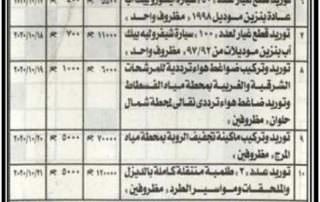 عادة بنزين موديل ١٩٩٨، مظروف واحد،
٧ توريد قطع غيار لعدد ١٠٠ سيارة شيفروليه بيك ٧٠٠ ٢٠٢٠/١٠/١٨
أب بنزين موديلات ٩٧/٩٢، مظروف واحد،
٨ توريد وتركيب ضواغط هواء ترددية للمرشحات ٦٠٠٠ ١٠٠٠ ٢٠٢٠/١٠/١٩
الشرقية والغربية بمحطة مياه الفسطاط
وتوريد ضاغط هواء ترددى نقالى لمحطة شمال
حلوان، مظروفين،
٩ توريد وتركيب ماكينة تجفيف الروبة بمحطة مياه ٧٠٠٠٠ ٥٠٠٠ ٢٠٢٠/١٠/٢٠
المرج، مظروفين،
١٠ توريد عدد ٢٠ طلمبة متنقلة كاملة بالديزل ١٢٠٠٠٠ ٥٠٠٠ ٢٠٢٠/١٠/٢١
والملحقات ومواسير الطرد، مظروفين،